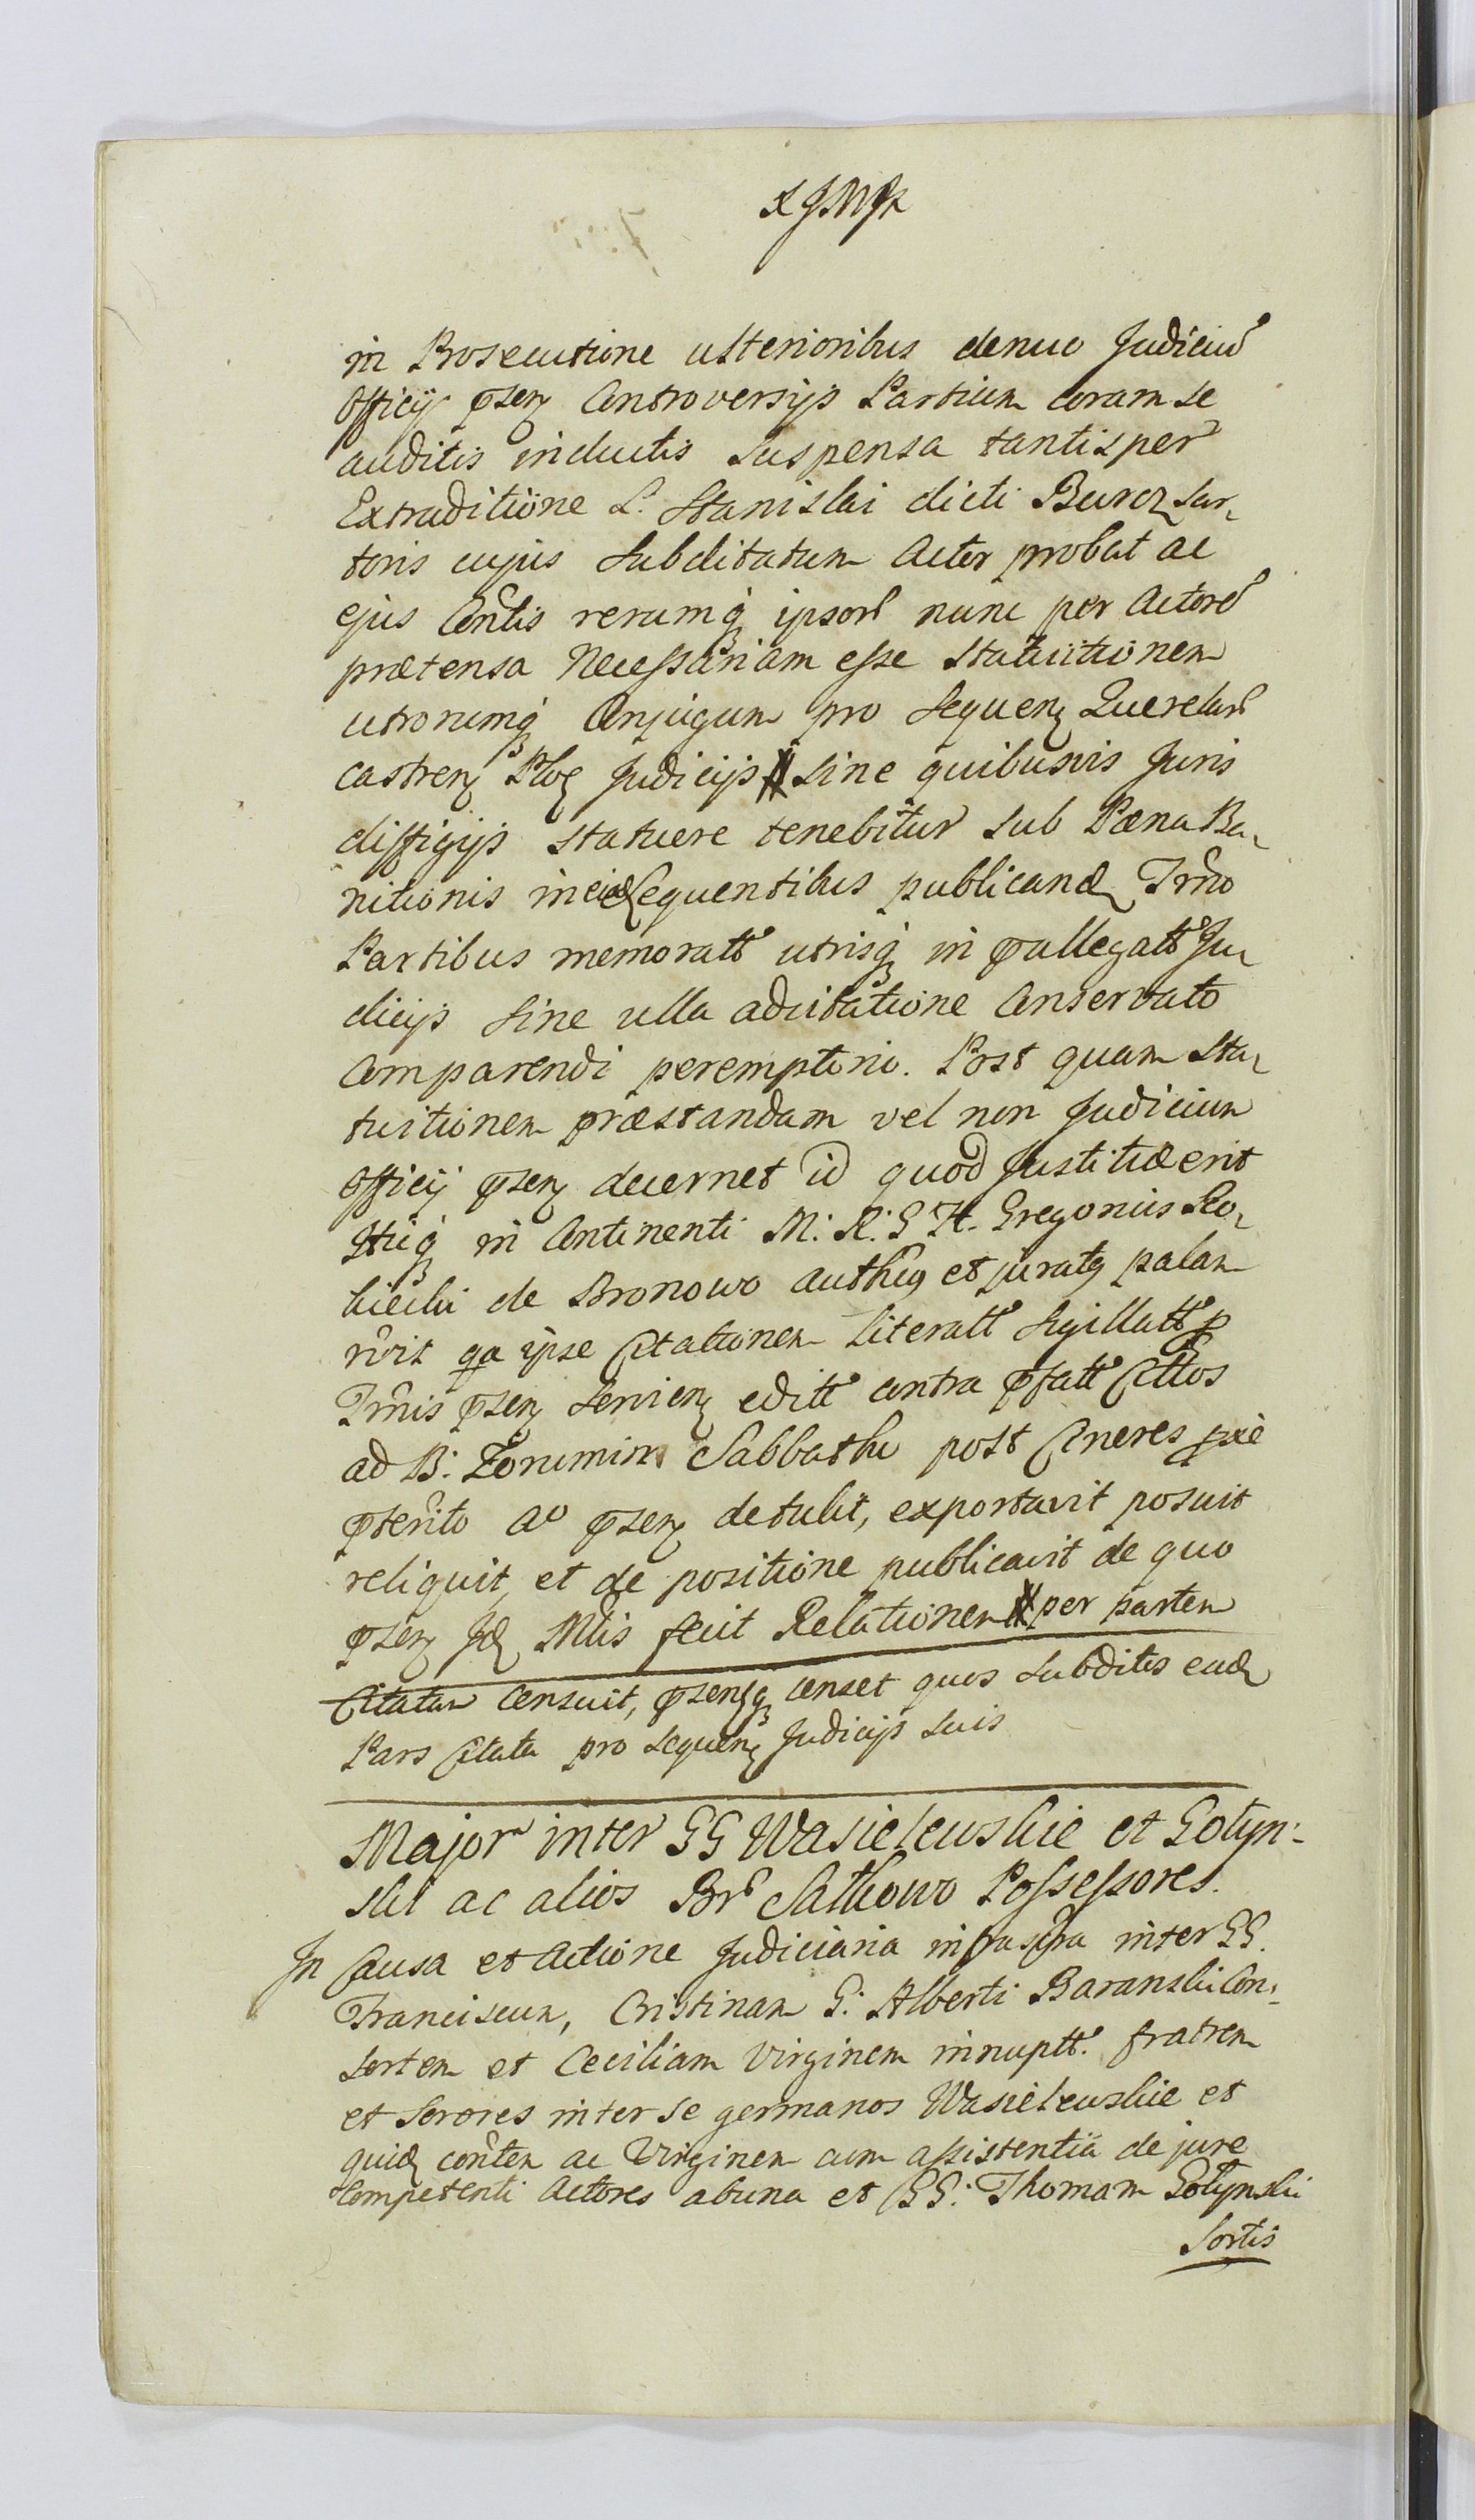 in Prosecutione ulterioribus denuo Judiciũ
Officij p̄sen̄ Controversijs Partium coram se
auditis inductis suspensa tantisper
Extraditione L. Stanislai dicti Burcz Sar-
toris cujus Subditatum Actor probat ac
ejus Con̄tis rerumq́ ipsor̃ nunc per Actorẽ
prætensa Necessariam esse Statuitionem
utrorumq́ Conjugum pro Sequen̄ Querelar̃
castren̄ Plo͠c Judicijs Sine quibusvis Juris
diffigijs statuere tenebitur sub Pœna Ba-
nitionis in eisd̄ Sequentibus publicand̄ Tr̄no
Partibus memoratt° utrisq́ in p̄allegatt° Ju-
dicijs Sine ulla adcitatione Conservato
Comparendi peremptorio. Post quam Sta-
tuitionem præstandam vel non Judicium
Officij p̄sen̄ decernet id quod Justitiæ erit
Stiq́ in Continenti M: R: G H. Gregorius Sko-
lieski de Bronowo auth̃ēq et juratq palam
r̃vit qa ipse Citationem Literatt° Sigillatt° p
Tr̄nis p̄sen̄ Servien̄ editt° contra p̄fatt° Cittos
ad B: Zorumin Sabbatho post Cineres pxè
p̄terito A° p̄sen̄ detulit, exportavit posuit
reliquit, et de positione publicavit de quo
p̄sen̄ Id̄ Mlis fecit Relationem per partem
Citatam censuit, p̄senq́ censet quos Subditos ead̄
Pars Citata pro sequen̄ Judicijs suis
Major inter GG Wasielewskie et Gołyn-
ski ac alios Br̃ Sathowo Possessores.
In Causa et Actione Judiciaria infrascr̄a inter GG.
Franciscum, Cristinam G: Alberti Baranski Con-
sortem et Ceciliam Virginem innuptt°. fratrem
et Sorores inter se germanos Wasielewskie et
quid̄ con̄tem ac Virginem cum assistentia de jure
Competenti Actores ab una et GG: Thomam Gołynski
Sortis